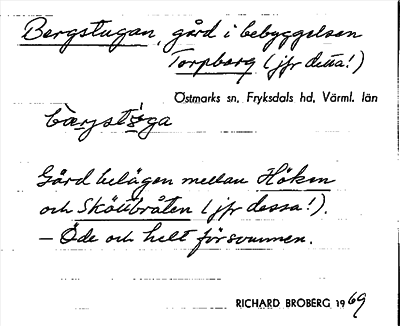 Bergstugan, gård i bebyggelsen
Torpberg (jfr detta!)
Östmarks sn, Fryksdals hd, Värml. län
Gård belägen mellan Höken
och Skättbråten (jfr dessa!).
– Öde och helt försvunnen.
RICHARD BROBERG 1969